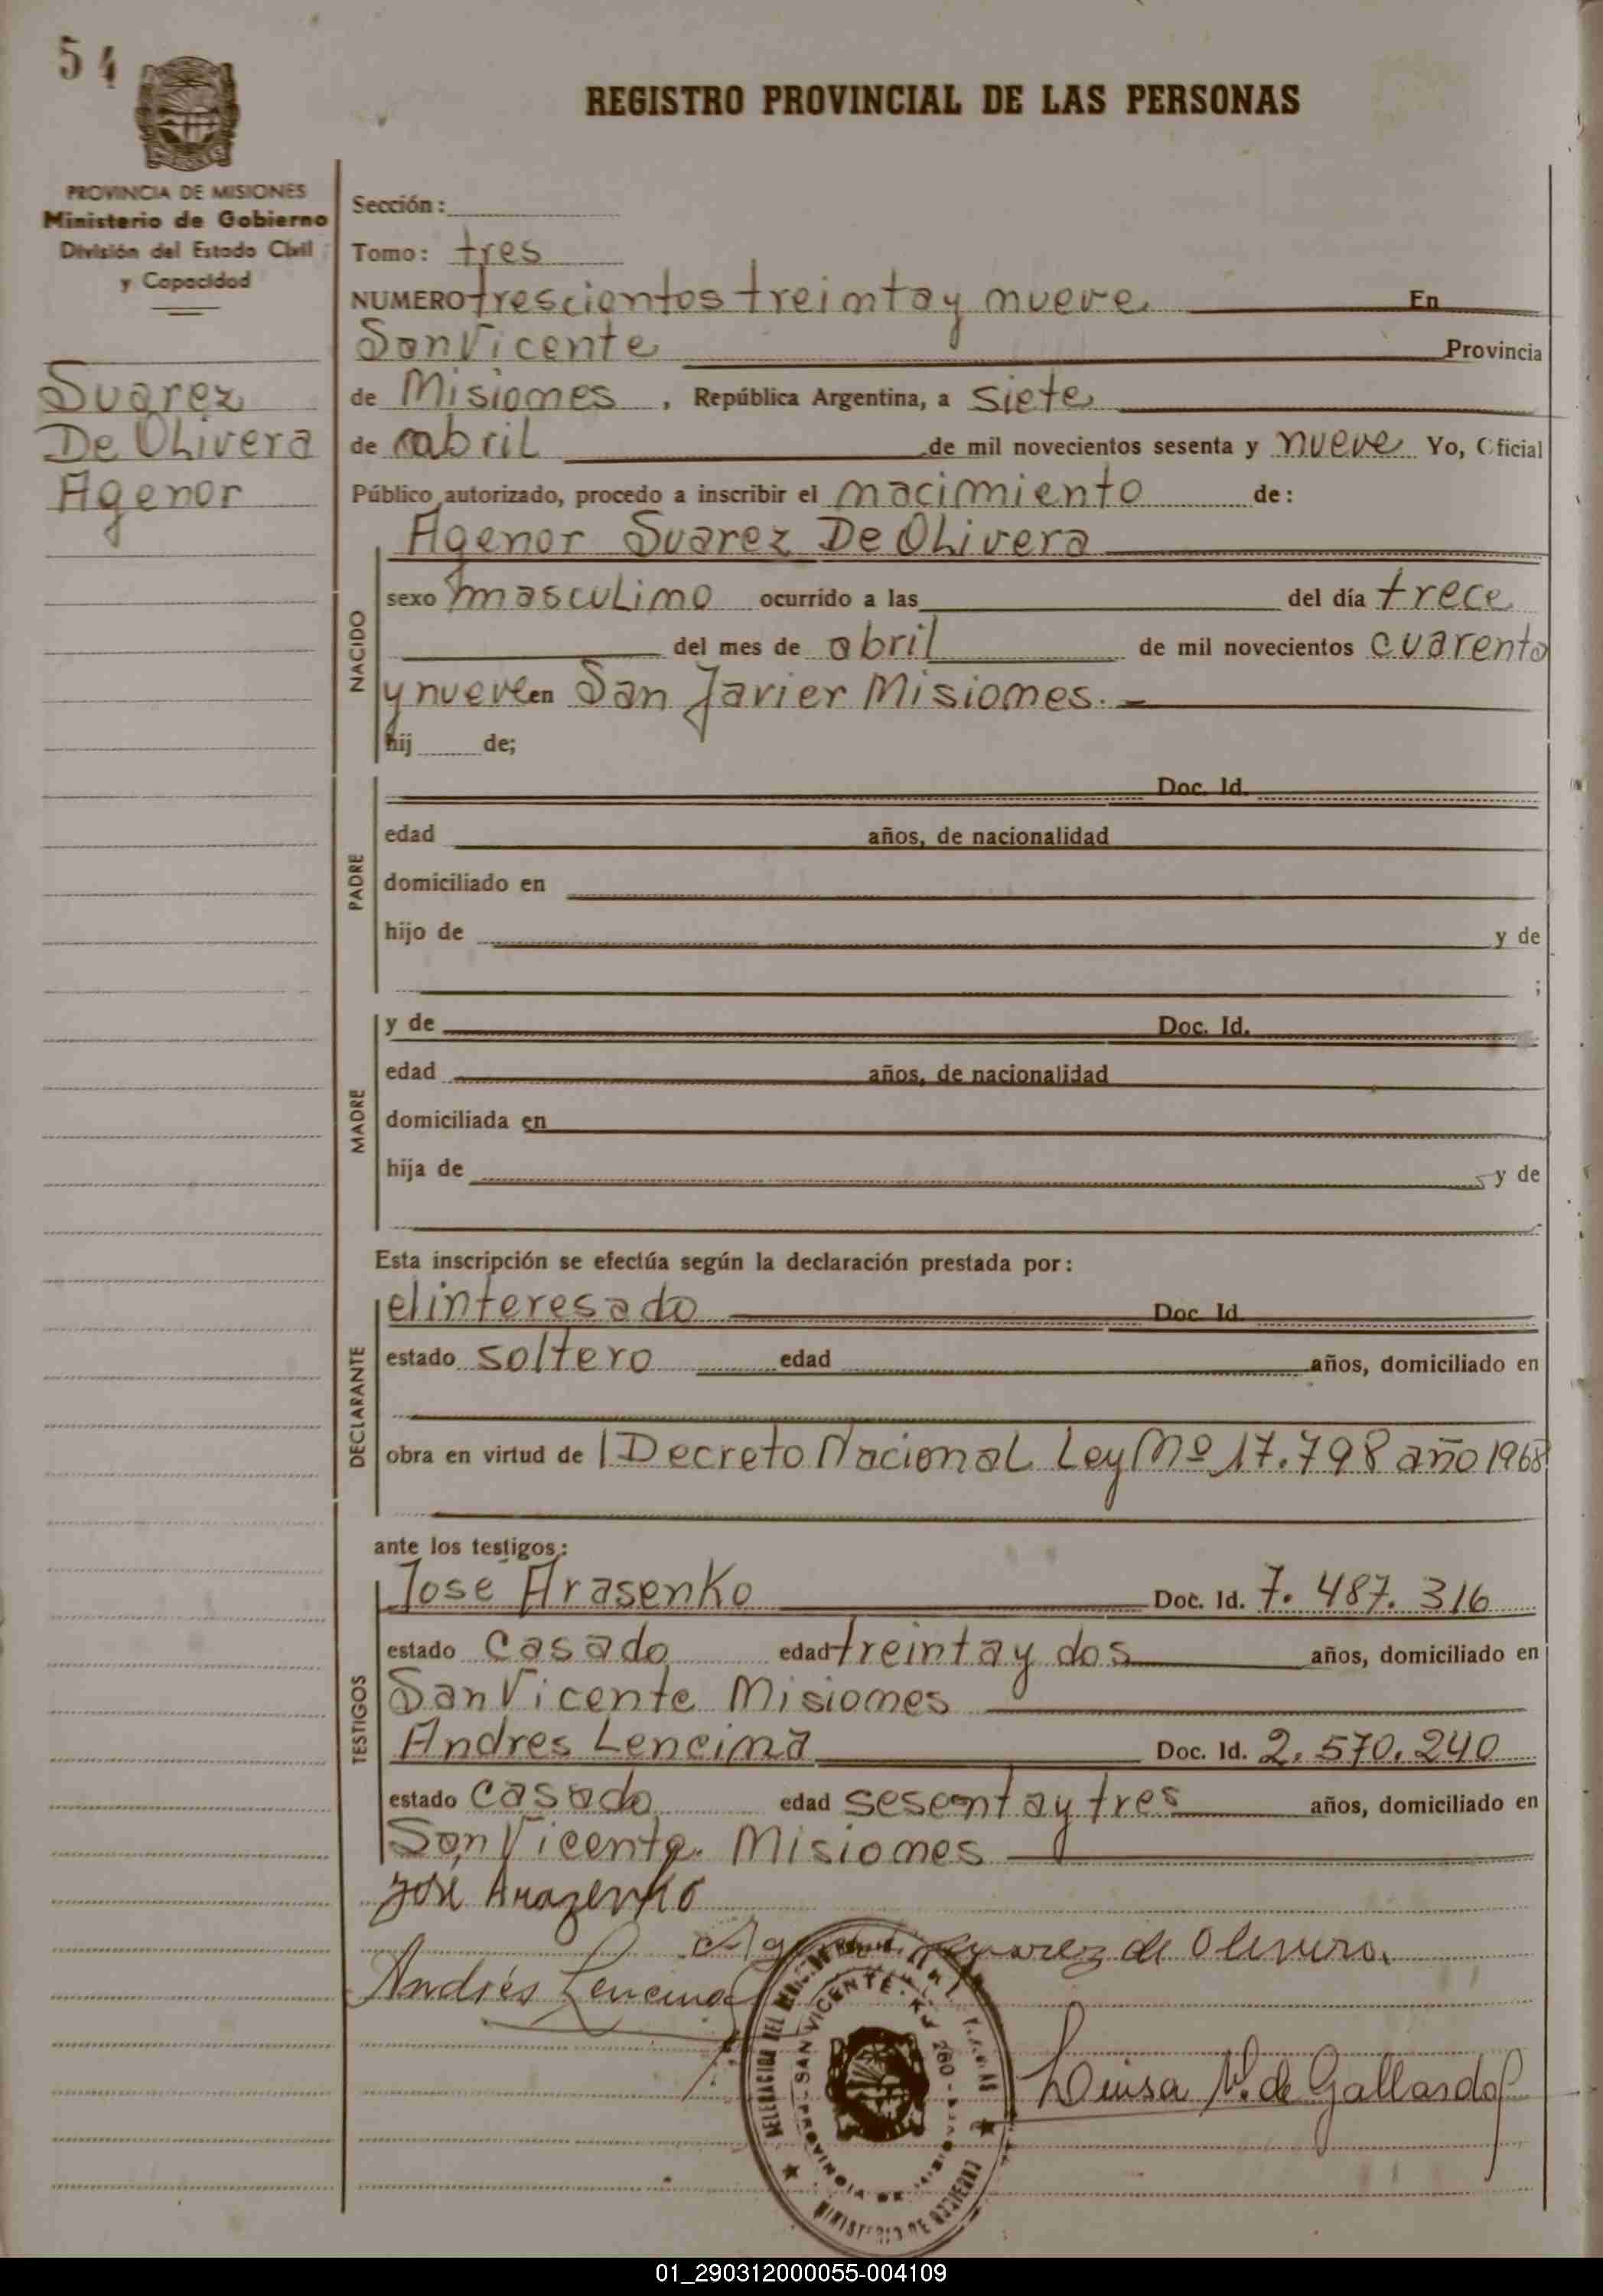 54
REGISTRO PROVINCIAL DE LAS PERSONAS
PROVINCIA DE MISIONES
Ministerio de Gobierno
División del Estado Civil
y Capacidad
Suarez
De Olivera
Agenor
Sección:
Tomo: tres
NUMERO trescientos treinta y nueve En
San Vicente Provincia
de Misiones, República Argentina, a siete
de abril de mil novecientos sesenta y nueve Yo, Oficial
Público autorizado, procedo a inscribir el nacimiento de:
NACIDO
Agenor Suarez De Olivera
sexo masculino ocurrido a las del día trece
del mes de abril de mil novecientos cuarenta
y nueve en San Javier Misiones.
hij de;
PADRE
Doc. Id.
edad años, de nacionalidad
domiciliado en
hijo de y de
;
MADRE
y de Doc. Id.
edad años, de nacionalidad
domiciliada en
hija de y de
Esta inscripción se efectúa según la declaración prestada por:
DECLARANTE
el interesado Doc. Id.
estado soltero edad años, domiciliado en
obra en virtud de l Decreto Nacional Ley Nº 17.798 año 1968
ante los testigos:
TESTIGOS
Jose Arasenko Doc. Id. 7.487.316
estado casado edad treinta y dos años, domiciliado en
San Vicente Misiones
Andres Lencina Doc. Id. 2.570.240
estado casado edad sesenta y tres años, domiciliado en
San Vicente. Misiones
José Arazenko
Suarez de Olivera
Andrés Lencina
SAN VICENTE
PROVINCIA DE
MINISTERIO DE GOBIERNO
Luisa V. de Gallardo
01_290312000055-004109